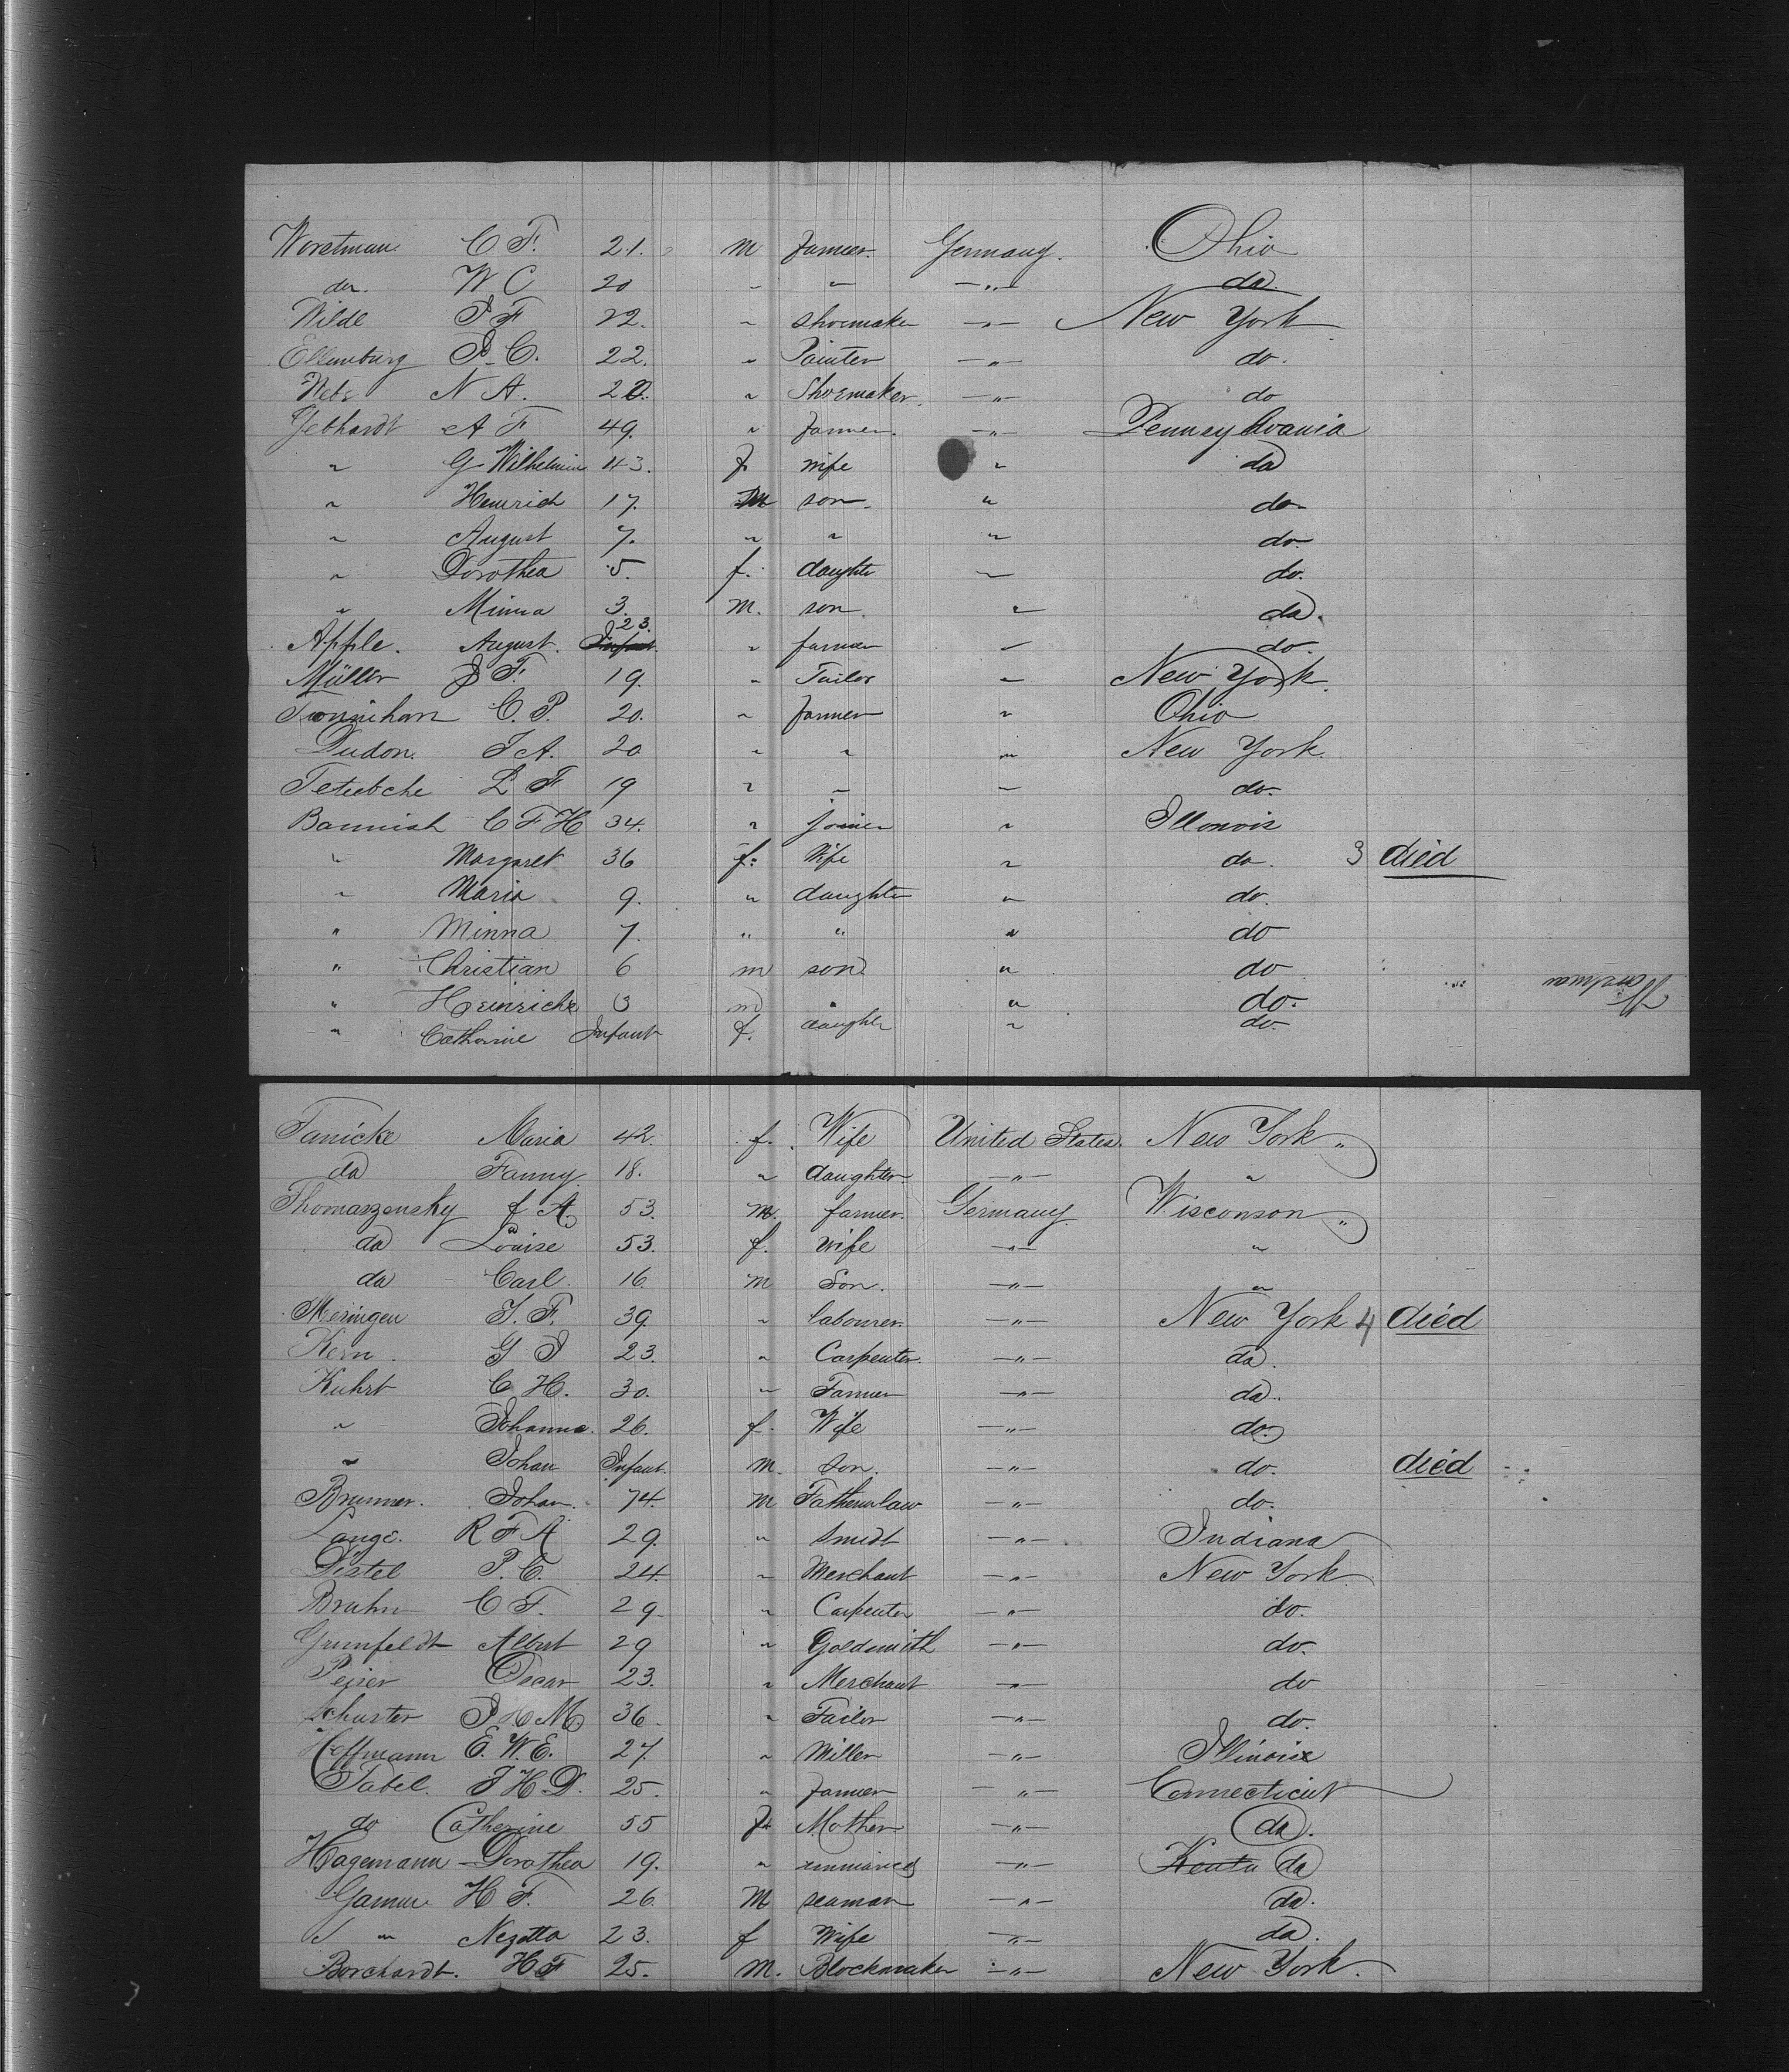 Worstman C F. 21. m Farmer. Germany. Ohio
do. W C 20 " " —"— do.
Wilde P F 22. " shoemaker —"— New York
Ellenburg P. C. 22. " Painter —"— do.
N A. 20. " Shoemaker. —"— do
Gebhardt A F 49. " Farmer. —"— Pennsylvania
" G Wilhelmin 43. f wife " do
" Heinrich 17. M son. " do.
" August 7. " " " do.
" Dorothea 5. f. daughte " do.
" Minna 3. M. son " do.
Apple. August. Infant. 23. " farmer " do.
Müller J F. 19. " Tailor " New York.
C. P. 20. " Farmer " Ohio
Dudon. F A. 20 " " " New York.
L F 19 " " " do.
Bannish C F H 34. " joiner " Illonois
" Margaret 36 f. Wife " do. 3 died
" Maria 9. " daughter " do.
" Minna 7. " " " do
" Christian 6 m son " do
" Heinrich 3 m " " do.
" Catherine Infant f. daughter " do
Worstman
Tanicke Maria 42. f. Wife United States. New York "
do Fanny. 18. " daughter. —"— "
Thomaszensky f A. 53. m. farmer. Germany Wisconson "
do Louise 53. f. wife —"— "
do Carl. 16. m Son. —"— "
Meringen F. F. 39. " labourer. —"— New York 4 died
Kern. G P 23. " Carpenter. —"— do.
Kuhrt C H. 30. " Farmer —"— do.
" Johanna. 26. f. Wife —"— do.
" Johan Infant. m. son. —"— do. died
Brunner. Johan. 74. m Fatherinlaw —"— do.
Lange. R F A 29. " smidt —"— Indiana
Distel P. C. 24. " Merchant —"— New York.
Bruhn C F. 29. " Carpenter —"— do.
Grunfeldt Albert 29 " Goldsmith —"— do.
Peiser Oscar 23. " Merchant —"— do
Schuster J H M 36. " Tailor —"— do.
Hoffmann E. W. E. 27. " Miller —"— Illinois
Tabel. F H D. 25. " Farmer —"— Connecticut
do Catherine 55 f Mother —"— do.
Hagemann Dorothea 19. " unmaried —"— Kentu do
H F. 26. M seaman —"— do.
" Negotta 23. f Wife —"— do.
Borchardt. H F 25. M. Blockmaker —"— New York.